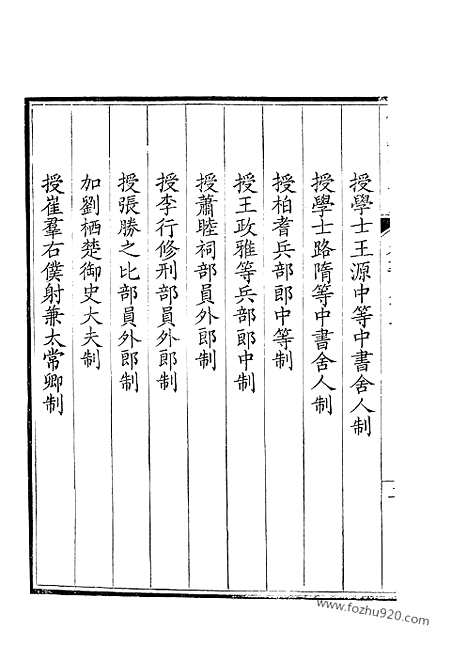 授學士王源中等中書舍人制
授學士路隋等中書舍人制
授柏耆兵部郎中等制
授王政雅等兵部郎中制
授蕭睦祠部員外郎制
授李行修刑部員外郎制
授張勝之比部員外郎制
加劉栖楚御史大夫制
授崔羣右僕射兼太常卿制
www.fozhu920.com